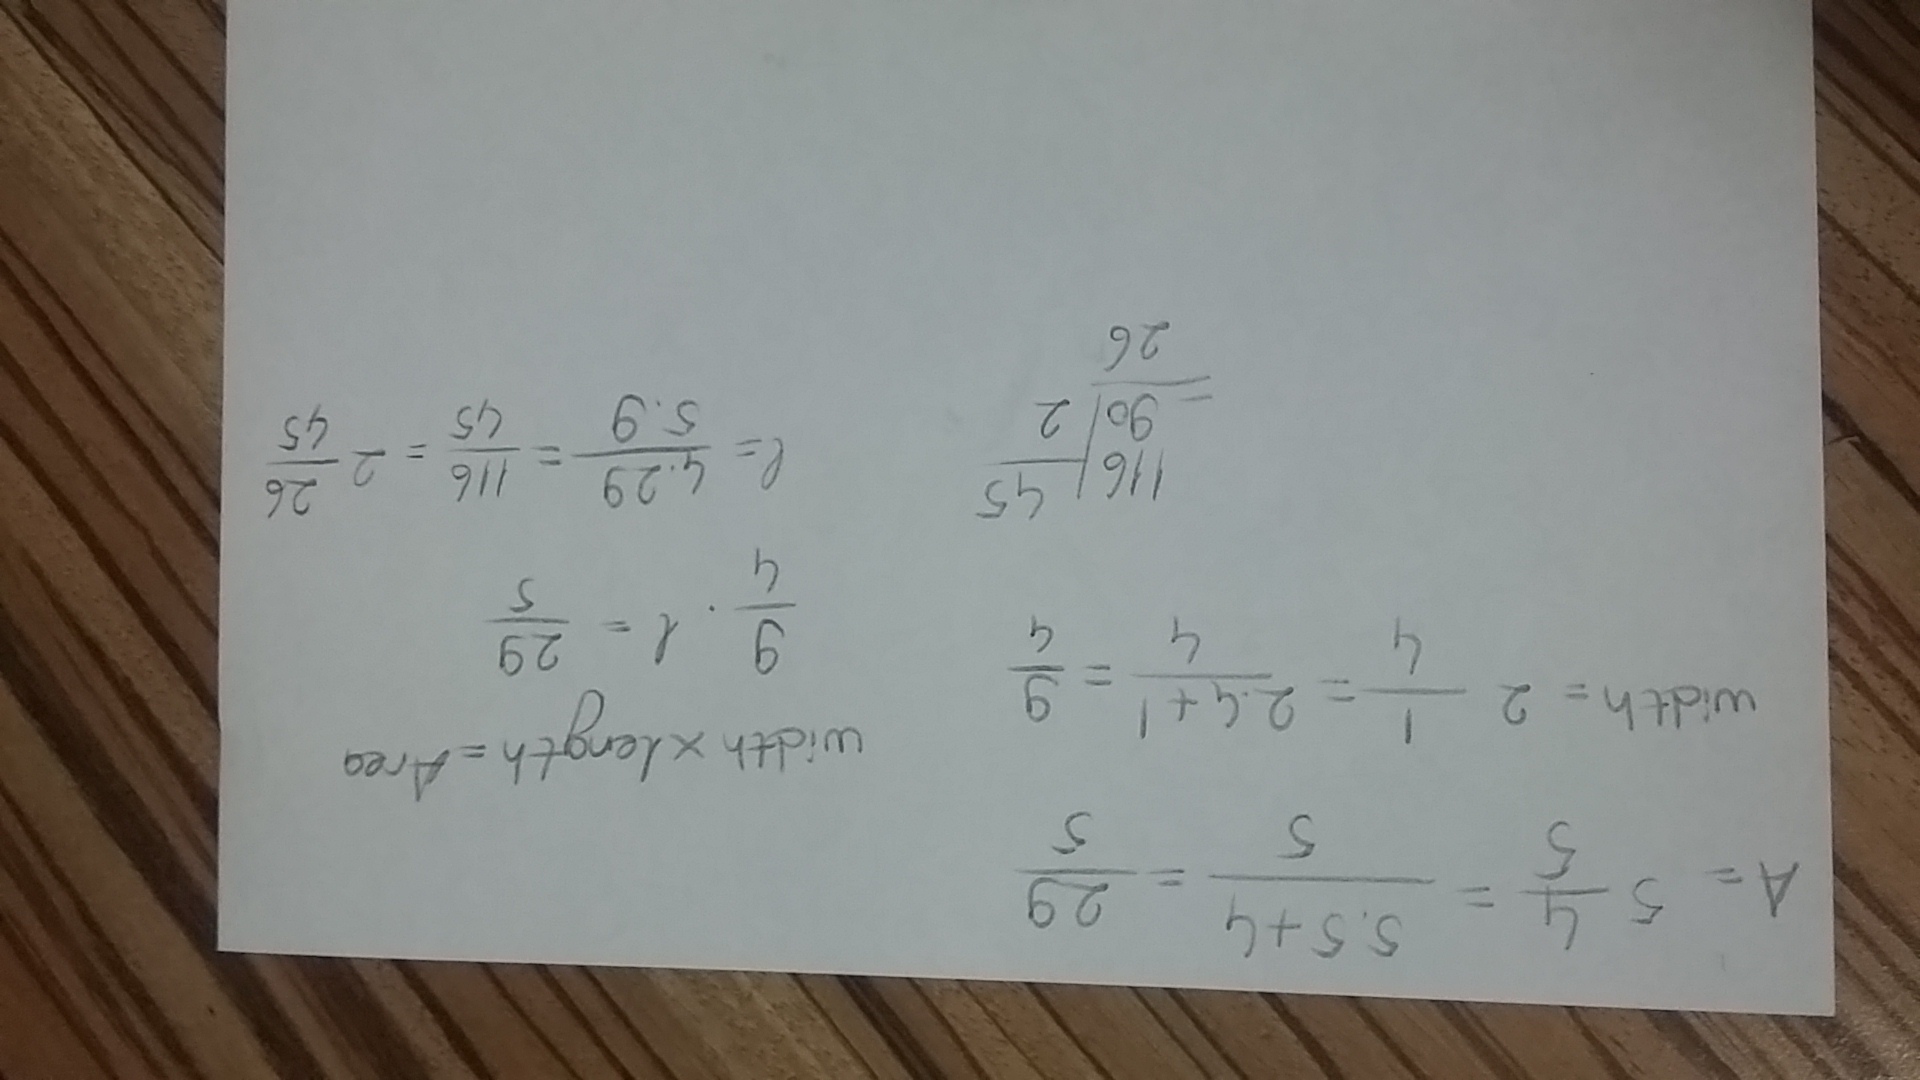 A = 5 4/5 = 5.5+4/5 = 29/5
width = 2 1/4 = 2.4+1/4 = 9/4
width x length = Area
9/4 . l = 29/5
l = 4.29/5.9 = 116/45 = 2 26/45
116 | 45
90 | 2
=
26